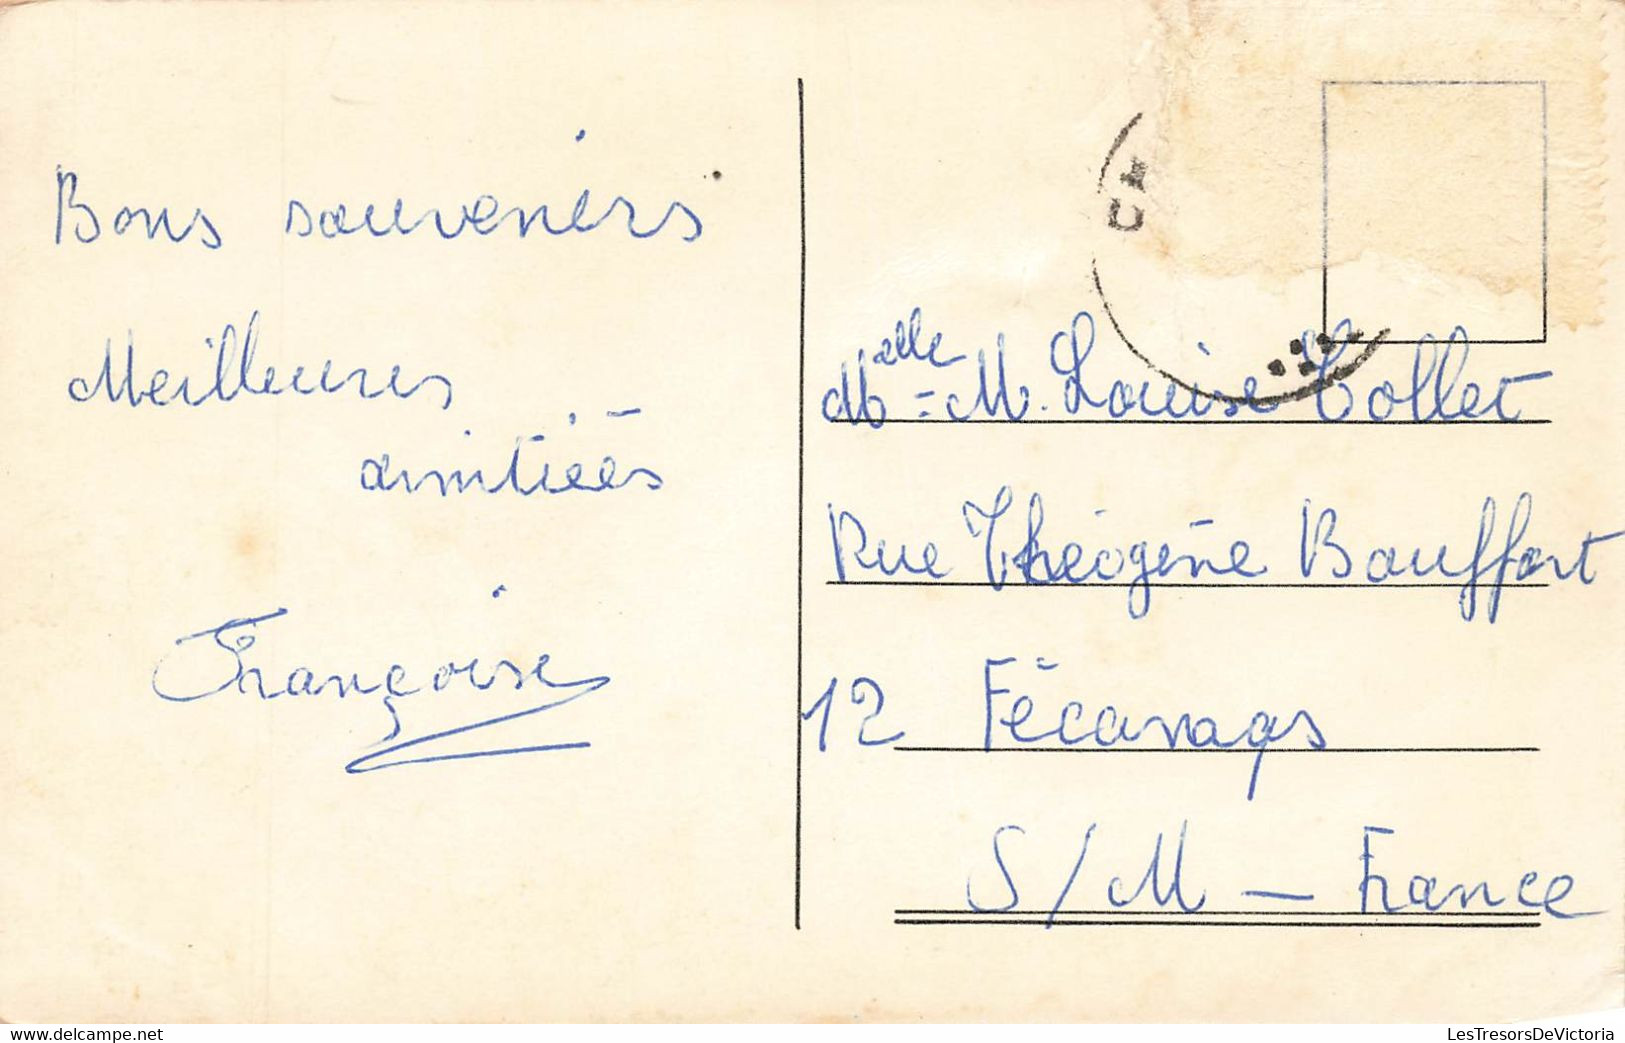 Bons souveniers
Meilleures
amitiés
Françoise
Melle = M. Louise Collet
Rue Théogène Bouffort
12 Fécamps
S/M - France
delcampe.net
LesTresorsDeVictoria